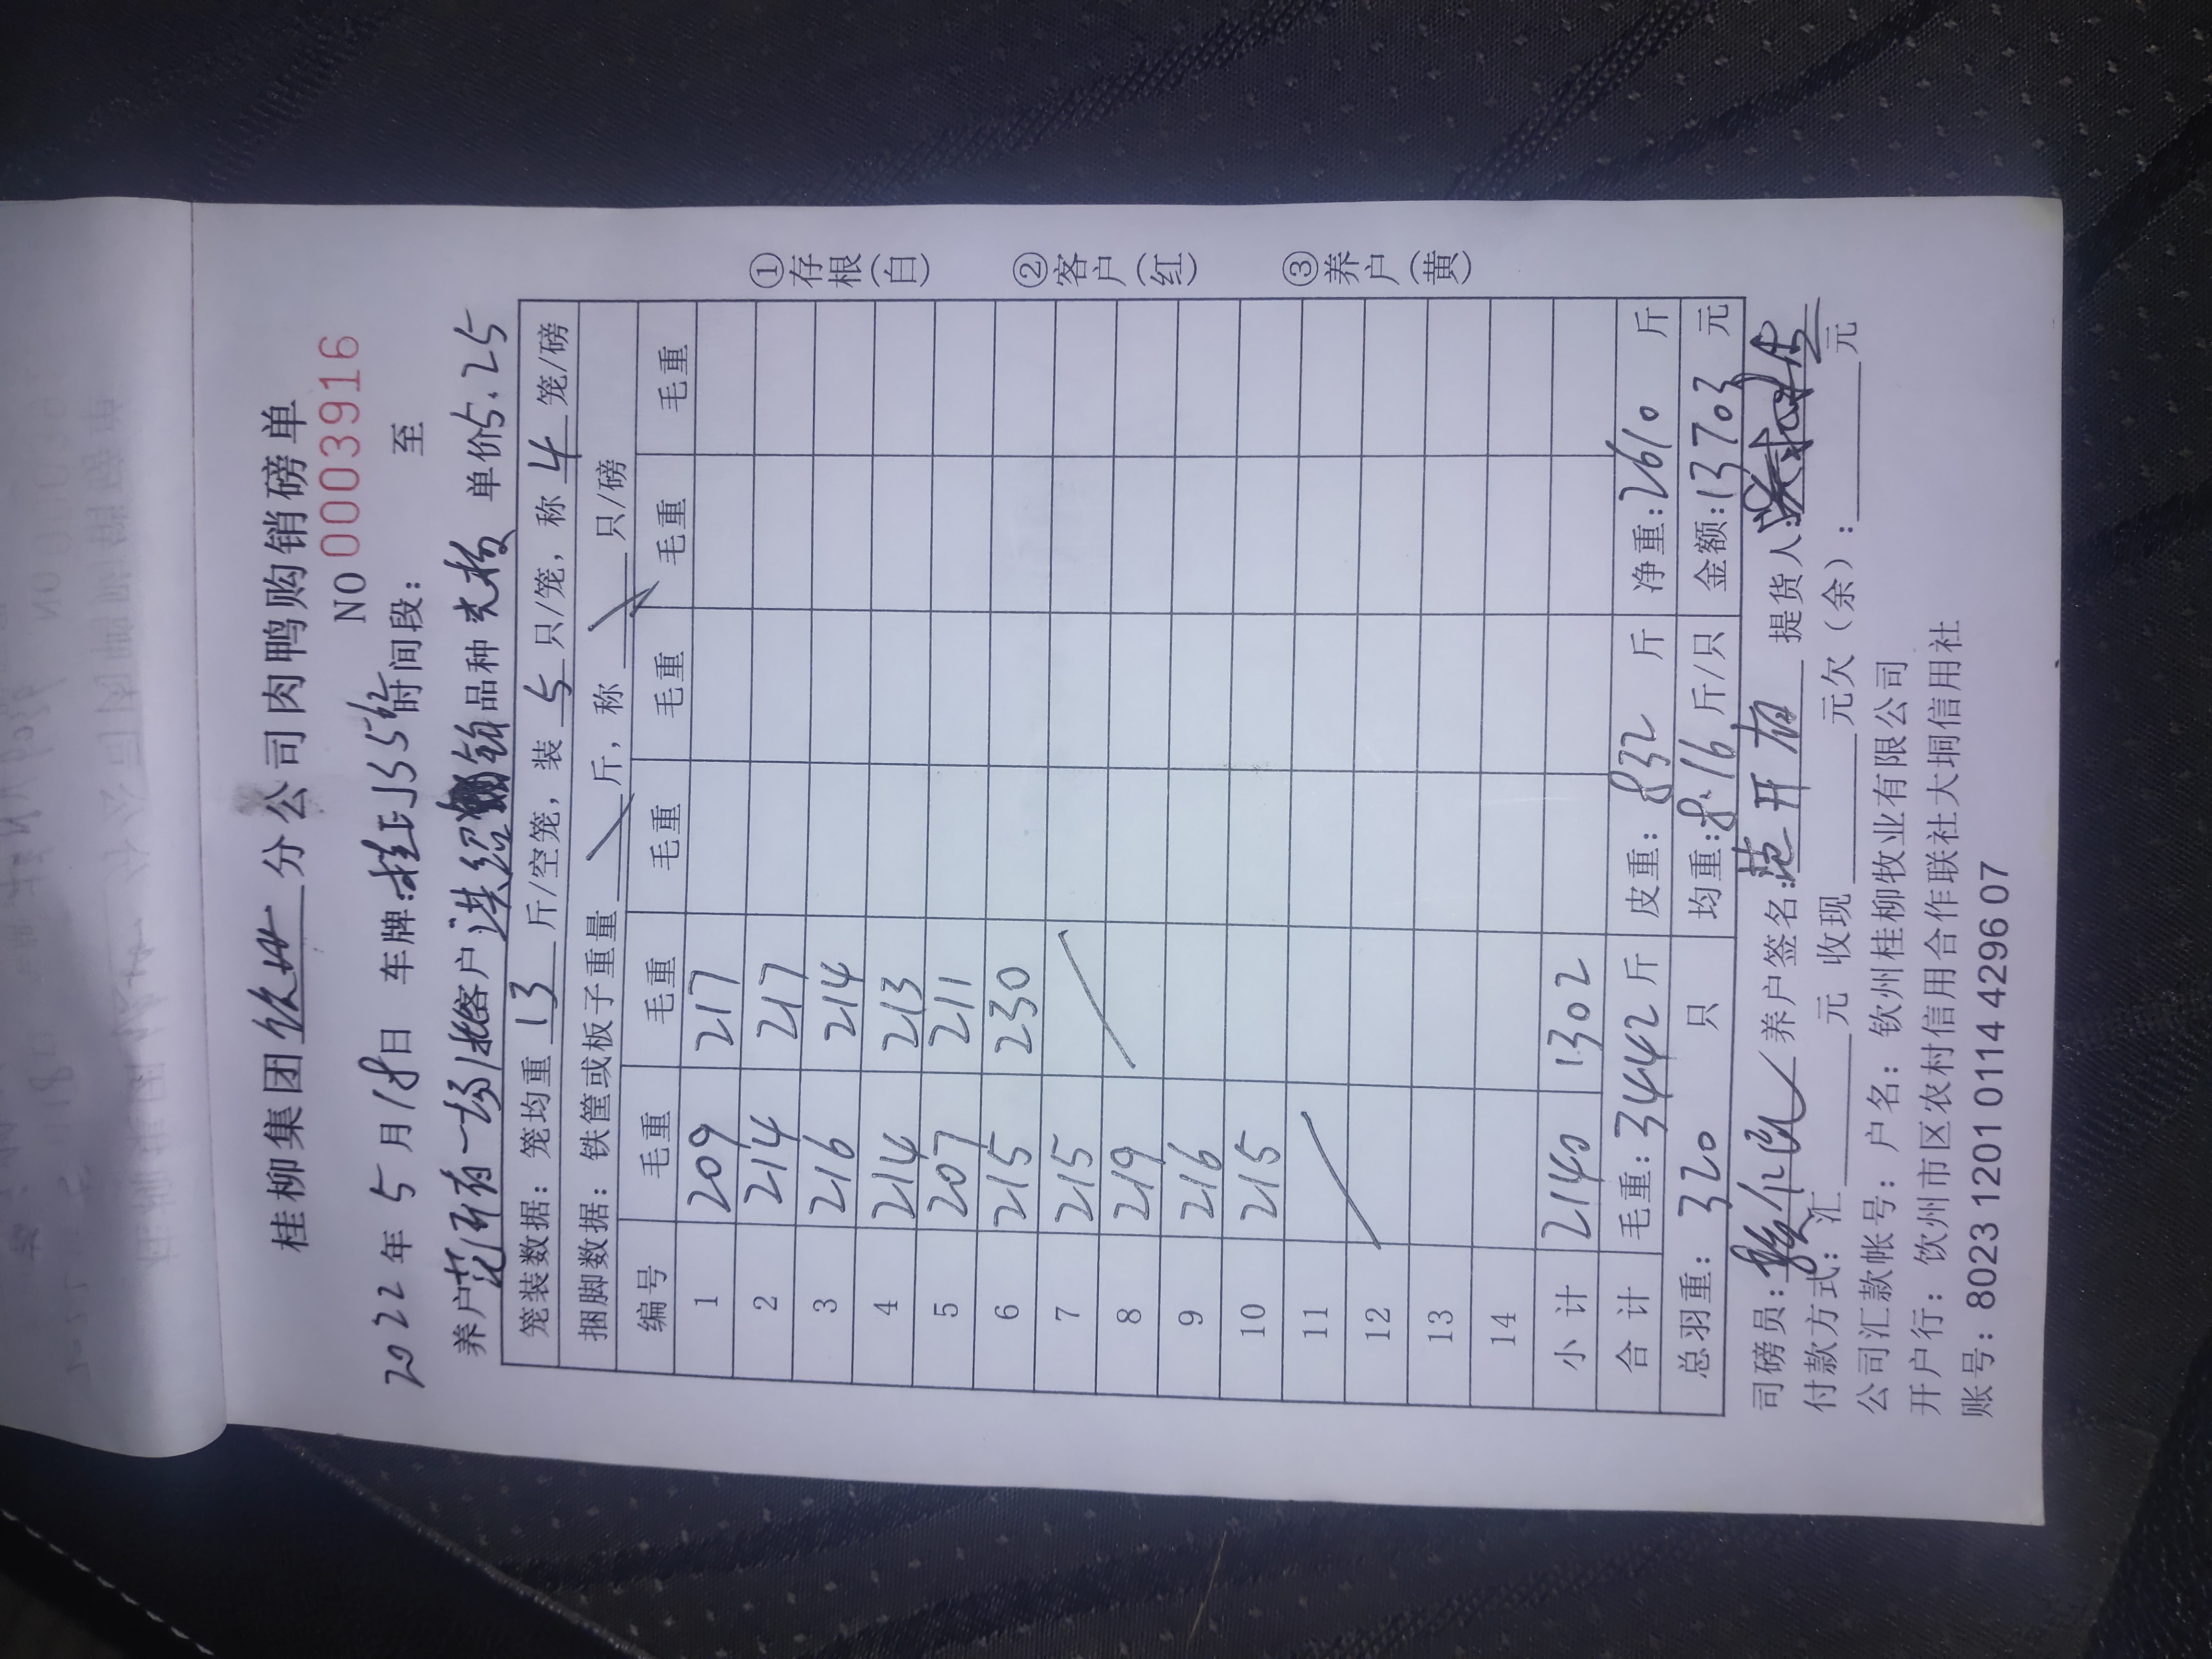 桂柳集团 钦州 分公司肉鸭购销磅单
NO 0003916
2022年5月18日 车牌:桂 J3556 时间段: 至
养户 范开有一场 客户 洪绍 品种 单价5.25
笼装数据:笼均重 13 斤/空笼,装 5 只/笼,称 4 笼/磅
捆脚数据:铁筐或板子重量 / 斤,称 / 只/磅
编号 毛重 毛重 毛重 毛重 毛重 毛重
1 209 217
2 214 217
3 216 214
4 214 213
5 207 211
6 215 230
7 215
8 219
9 216
10 215
11
12
13
14
小计 2140 1302
合计 毛重:3442斤 皮重:832 斤 净重:2610 斤
总羽重:320 只 均重:8.16 斤/只 金额:13703 元
司磅员: 养户签名:范开有 提货人:
付款方式:汇 元 收现 元欠(余): 元
公司汇款帐号:户名:钦州桂柳牧业有限公司
开户行:钦州市区农村信用合作联社大垌信用社
账号:8023 1201 0114 4296 07
①存根(白) ②客户(红) ③养户(黄)